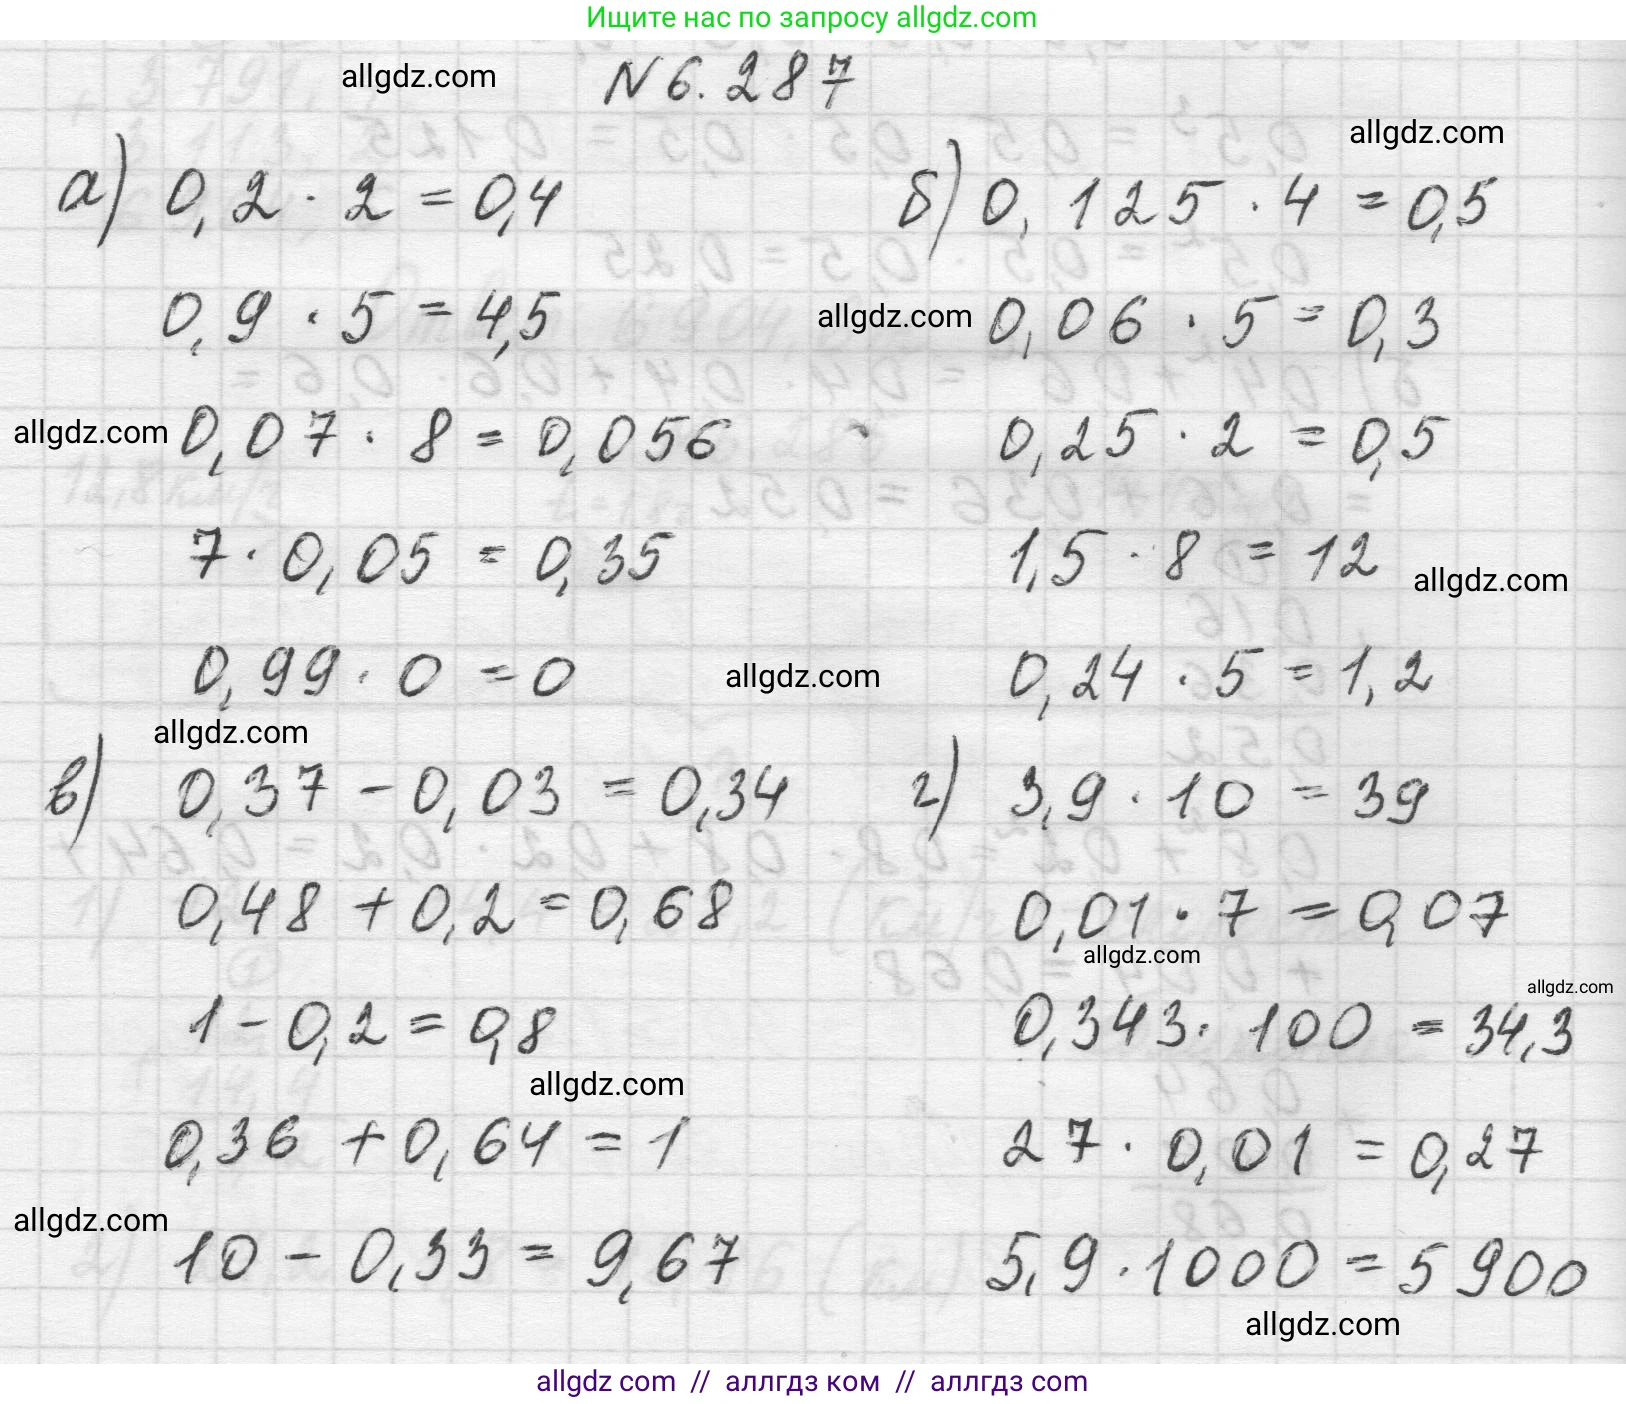 Ищите нас по запросу allgdz.com
allgdz.com
N 6.287
allgdz.com
а) 0,2 · 2 = 0,4
0,9 · 5 = 4,5
allgdz.com
0,07 · 8 = 0,056
7 · 0,05 = 0,35
0,99 · 0 = 0
б) 0,125 · 4 = 0,5
allgdz.com
0,06 · 5 = 0,3
0,25 · 2 = 0,5
1,5 · 8 = 12
allgdz.com
0,24 · 5 = 1,2
allgdz.com
allgdz.com
в) 0,37 - 0,03 = 0,34
0,48 + 0,2 = 0,68
1 - 0,2 = 0,8
allgdz.com
0,36 + 0,64 = 1
allgdz.com
10 - 0,33 = 9,67
г) 3,9 · 10 = 39
0,01 · 7 = 0,07
allgdz.com
allgdz.com
0,343 · 100 = 34,3
27 · 0,01 = 0,27
5,9 · 1000 = 5900
allgdz.com
allgdz com // аллгдз ком // аллгдз com